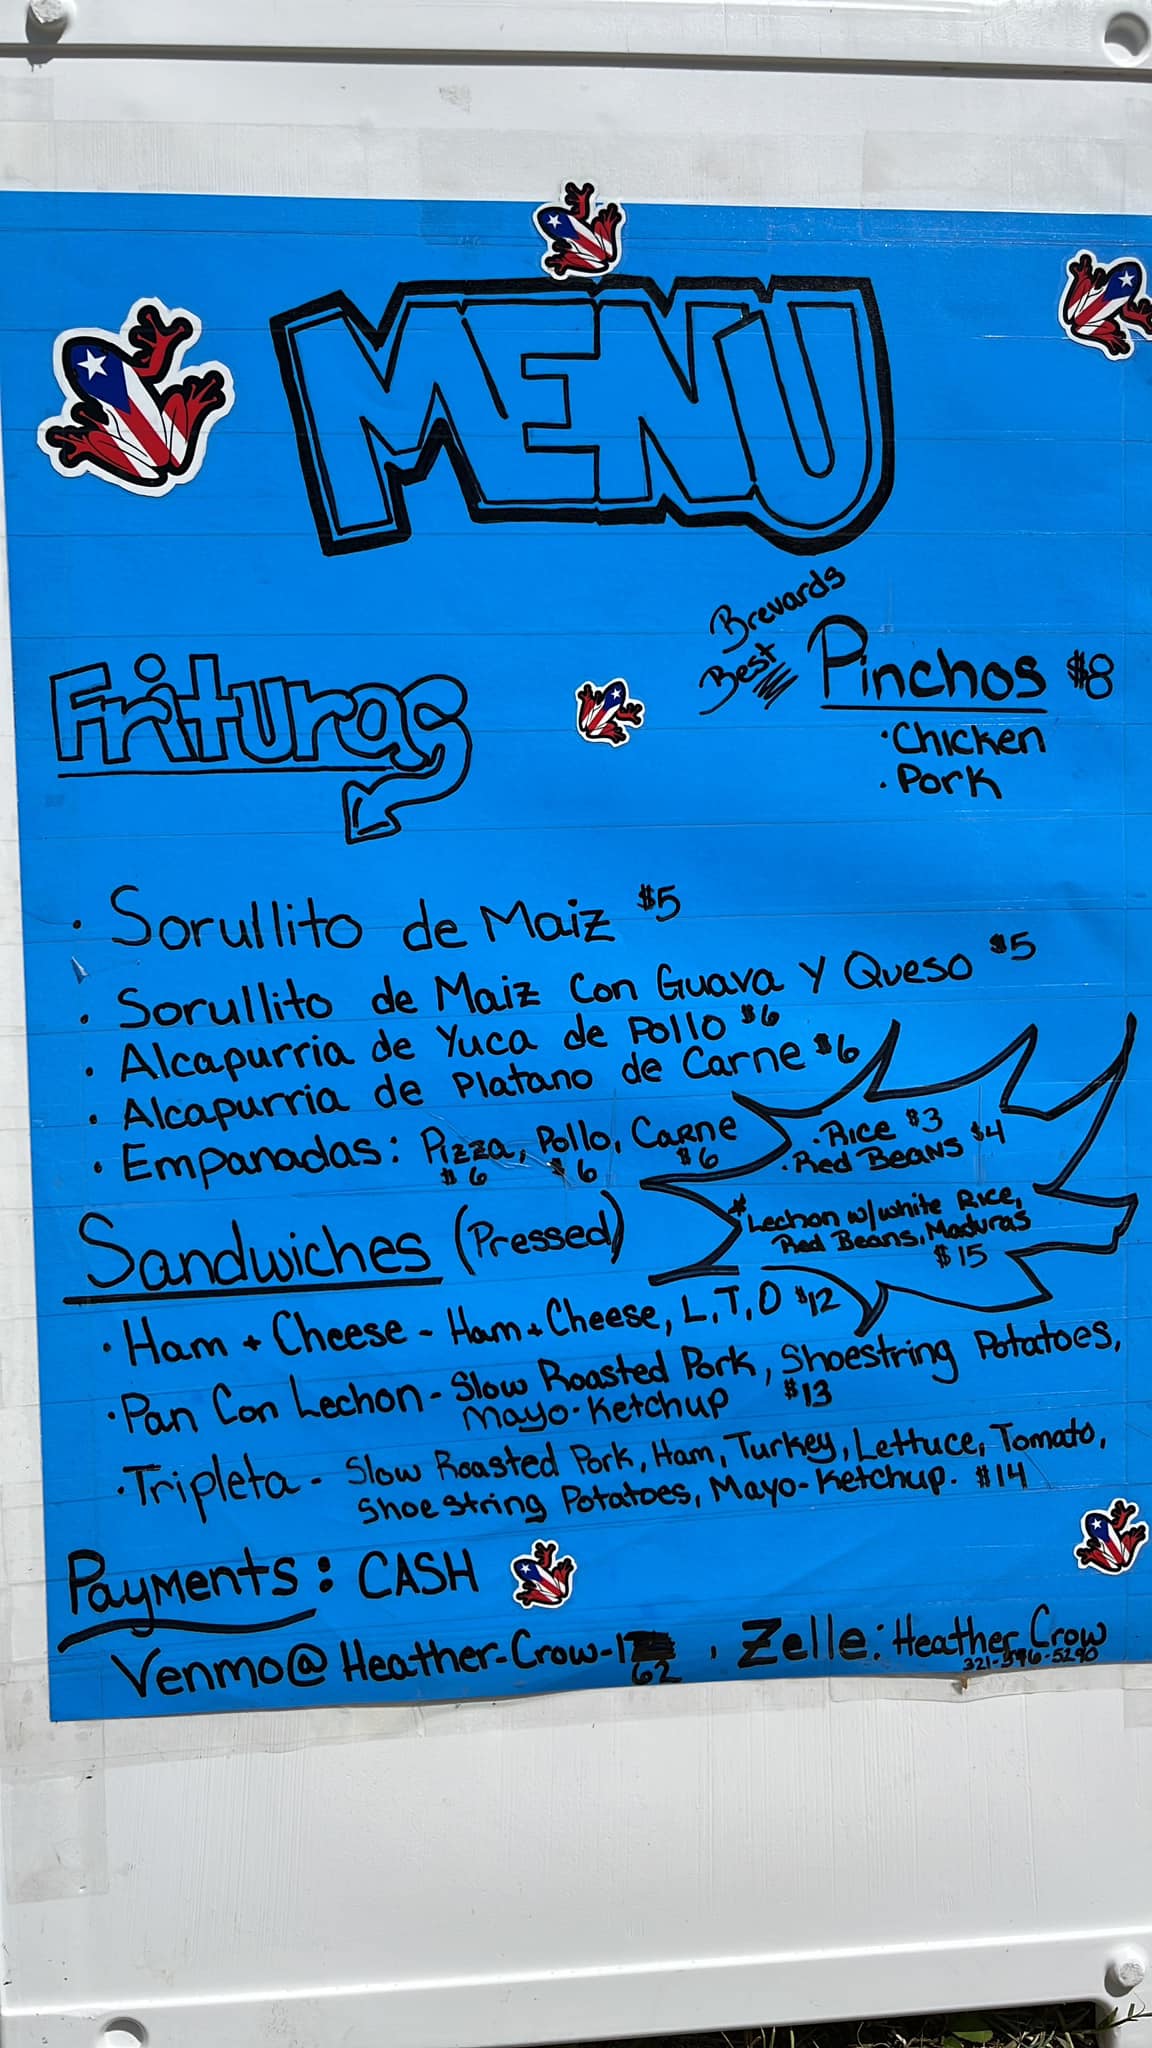 MENU
Brevards
Best
Pinchos $8
• Chicken
• Pork
Frituras
• Sorullito de Maiz $5
• Sorullito de Maiz Con Guava Y Queso $5
• Alcapurria de Yuca de Pollo $6
• Alcapurria de Platano de Carne $6
• Empanadas: Pizza, Pollo, Carne
$6 $6 $6
• Rice $3
• Red Beans $4
* Lechon w/white Rice,
Red Beans, Maduras
$15
Sandwiches (Pressed)
• Ham + Cheese - Ham + Cheese, L, T, O $12
• Pan Con Lechon - Slow Roasted Pork, Shoestring Potatoes,
Mayo-Ketchup $13
• Tripleta - Slow Roasted Pork, Ham, Turkey, Lettuce, Tomato,
Shoestring Potatoes, Mayo-Ketchup. $14
Payments: CASH
Venmo@Heather-Crow-1
62
, Zelle: Heather Crow